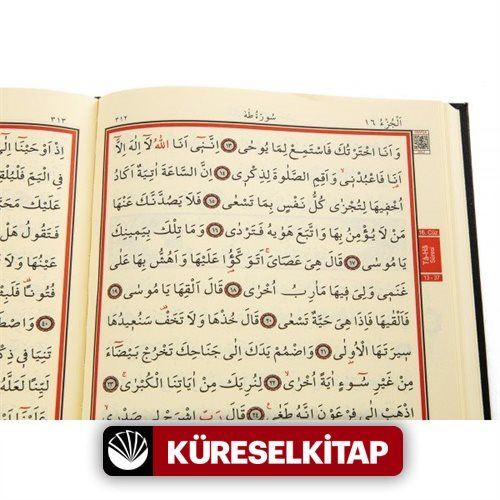 اَلْجُزْءُ ١٦
سُورَةُ طٰهٰ
٣١٢
وَاَنَا اخْتَرْتُكَ فَاسْتَمِعْ لِمَا يُوحٰى ﴿١٣﴾ اِنَّن۪ٓي اَنَا اللّٰهُ لَٓا اِلٰهَ اِلَّٓا
اَنَا۬ فَاعْبُدْن۪يۙ وَاَقِمِ الصَّلٰوةَ لِذِكْر۪ي ﴿١٤﴾ اِنَّ السَّاعَةَ اٰتِيَةٌ اَكَادُ
اُخْف۪يهَا لِتُجْزٰى كُلُّ نَفْسٍ بِمَا تَسْعٰى ﴿١٥﴾ فَلَا يَصُدَّنَّكَ عَنْهَا
مَنْ لَا يُؤْمِنُ بِهَا وَاتَّبَعَ هَوٰيهُ فَتَرْدٰى ﴿١٦﴾ وَمَا تِلْكَ بِيَم۪ينِكَ
يَا مُوسٰى ﴿١٧﴾ قَالَ هِيَ عَصَايَۚ اَتَوَكَّؤُ۬ا عَلَيْهَا وَاَهُشُّ بِهَا عَلٰى
غَنَم۪ي وَلِيَ ف۪يهَا مَاٰرِبُ اُخْرٰى ﴿١٨﴾ قَالَ اَلْقِهَا يَا مُوسٰى ﴿١٩﴾
فَاَلْقٰيهَا فَاِذَا هِيَ حَيَّةٌ تَسْعٰى ﴿٢٠﴾ قَالَ خُذْهَا وَلَا تَخَفْ۠ سَنُع۪يدُهَا
س۪يرَتَهَا الْاُو۫لٰى ﴿٢١﴾ وَاضْمُمْ يَدَكَ اِلٰى جَنَاحِكَ تَخْرُجْ بَيْضَٓاءَ
مِنْ غَيْرِ سُٓوءٍ اٰيَةً اُخْرٰىۙ ﴿٢٢﴾ لِنُرِيَكَ مِنْ اٰيَاتِنَا الْكُبْرٰىۚ ﴿٢٣﴾
اِذْهَبْ اِلٰى فِرْعَوْنَ اِنَّهُ طَغٰى ﴿٢٤﴾ قَالَ رَبِّ اشْرَحْ ل۪ي صَدْر۪ي
16. Cüz
Tâ-Hâ
Sûresi
13 - 37
٣١٣
اِذْ اَوْحَيْنَٓا اِلٰٓى
فِي الْيَمِّ فَلْيُلْقِهِ
عَلَيْكَ مَحَبَّةً
فَتَقُولُ هَلْ
عَيْنُهَا وَلَا
فُتُونًا۠ فَلَبِثْتَ
﴿٤٠﴾ وَاصْطَنَعْتُكَ
تَنِيَا ف۪ي ذِكْر۪ي
لَيِّنًا لَعَلَّهُ
عَلَيْنَٓا
KÜRESELKİTAP